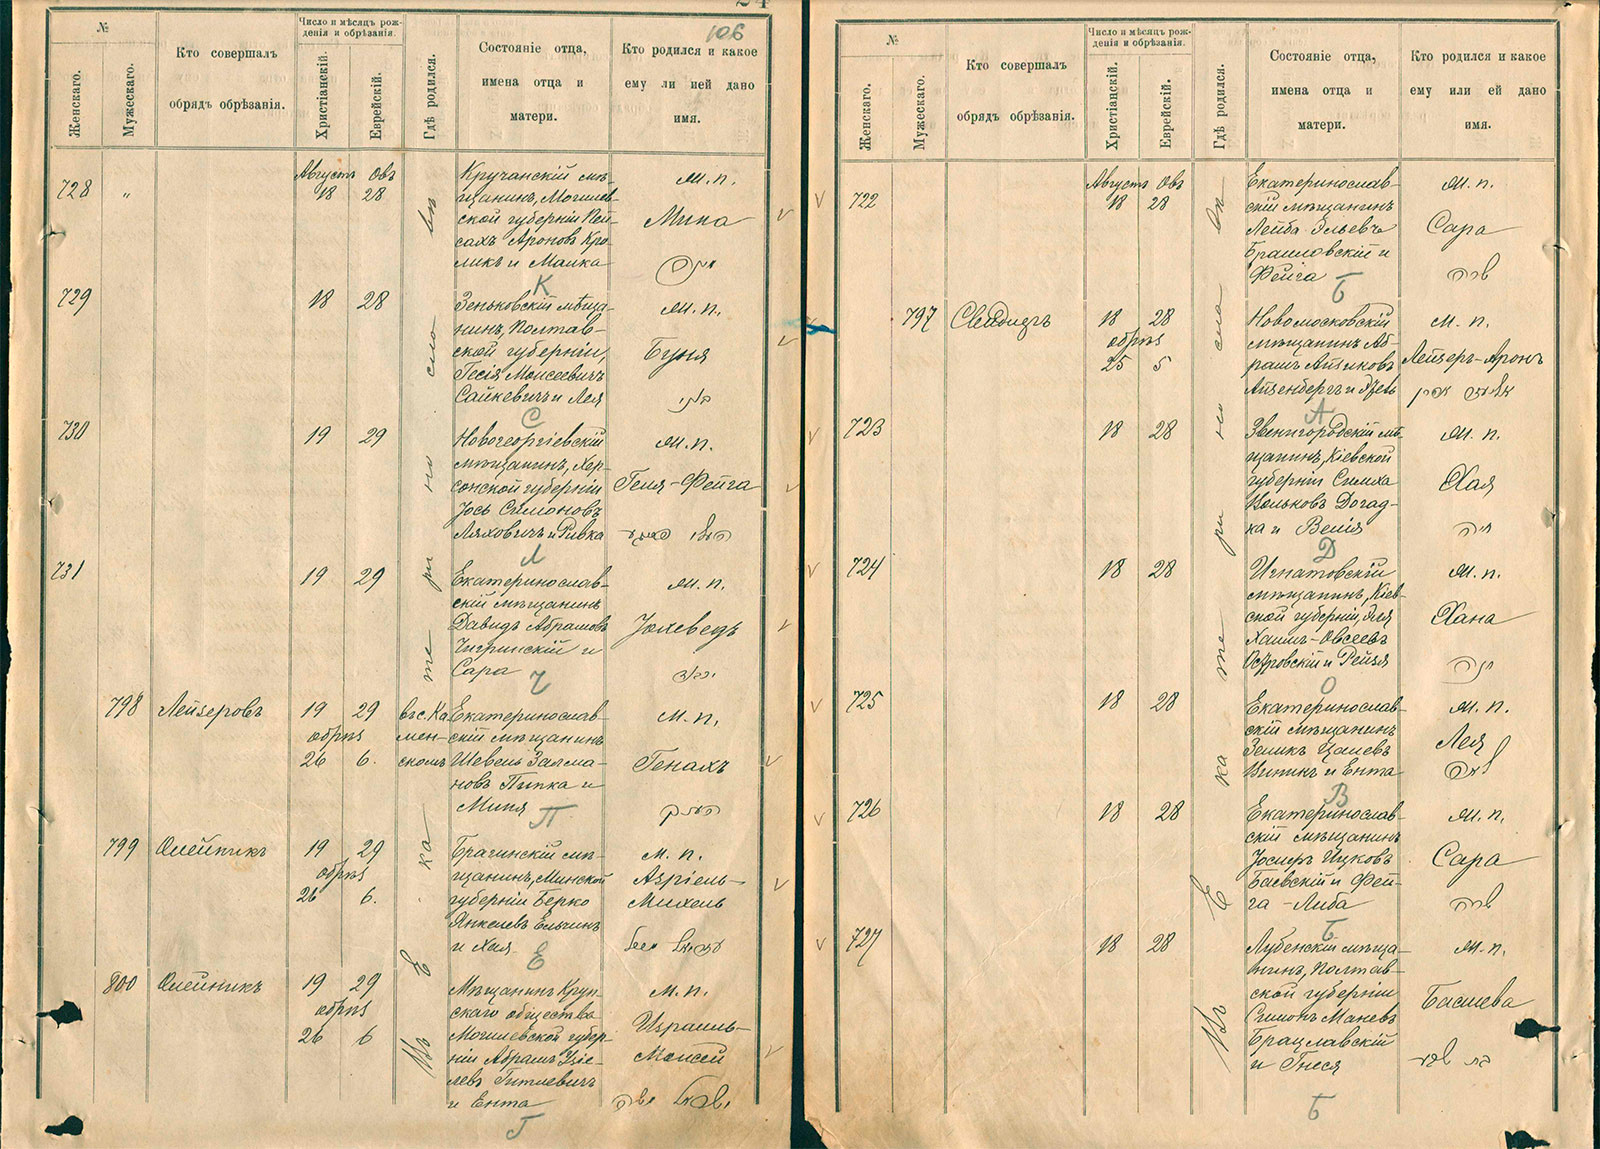 106
№
Женскаго.
Мужескаго.
Кто совершалъ
обрядъ обрѣзанія.
Число и мѣсяцъ рож-
денія и обрѣзанія.
Христіанскій.
Еврейскій.
Гдѣ родился.
Состояніе отца,
имена отца и
матери.
Кто родился и какое
ему ли ней дано
имя.
728
"
Августъ Овъ
18 28
Кручанскій мѣ-
щанинъ, Могилев-
ской губерніи Пей-
сахъ Ароновъ Кро-
ликъ и Малка
К
м.п.
Мина
729
18 28
Зеньковскій мѣща-
нинъ, Полтав-
ской губерніи,
Гесія Моисеевичъ
Сайкевичъ и Лея
С
м.п.
Буня
730
19 29
Новогеоргіевскій
мѣщанинъ, Хер-
сонской губерніи
Іось Симоновъ
Ляховичъ и Ривка
Л
м.п.
Геля-Фейга
731
19 29
Екатеринослав-
скій мѣщанинъ
Давидъ Абрамовъ
Чигринскій и
Сара
Ч
м.п.
Іохеведъ
798
Лейзеровъ
19 29
обрѣз
26 6.
въ с. Ка
мен-
скомъ
Екатеринослав-
скій мѣщанинъ
Шевель Залма-
новъ Пинка и
Миня
П
м.п.
Генахъ
799
Олейникъ
19 29
обрѣз
26 6.
Брагинскій мѣ-
щанинъ, Минской
губерніи Берко
Янкелевъ Ельчинъ
и Хая
Е
м.п.
Азріель-
Михель
800
Олейникъ
19 29
обрѣз
26 6
Мѣщанинъ Круп-
скаго общества
Могилевской губер-
ніи Абрамъ Узіе-
левъ Гитлевичъ
и Ента
Г
м.п.
Израиль-
Моисей
Въ Екатеринославѣ
№
Женскаго.
Мужескаго.
Кто совершалъ
обрядъ обрѣзанія.
Число и мѣсяцъ рож-
денія и обрѣзанія.
Христіанскій.
Еврейскій.
Гдѣ родился.
Состояніе отца,
имена отца и
матери.
Кто родился и какое
ему или ей дано
имя.
722
Августъ Овъ
18 28
Екатеринослав-
скій мѣщанинъ
Лейба Эльевъ
Браиловскій и
Фейга
Б
м.п.
Сара
שרה
797
18 28
обрѣз
25 5
Новомосковскій
мѣщанинъ Аб-
рамъ Айзиковъ
Айзенбергъ и
А
м.п.
Лейзеръ-Аронъ
723
18 28
Звенигородскій мѣ-
щанинъ, Кіевской
губерніи Симха
Вольковъ Догад-
ка и Велія
Д
м.п.
Хая
חיה
724
18 28
Игнатовскій
мѣщанинъ, Кіев-
ской губерніи, Эля
Хаимъ-Овсеевъ
Островскій и Рейзя
О
м.п.
Хана
חנה
725
18 28
Екатеринослав-
скій мѣщанинъ
Зеликъ Цалевъ
Виникъ и Ента
В
м.п.
Лея
לאה
726
18 28
Екатеринослав-
скій мѣщанинъ
Іосифъ Ицковъ
Баевскій и Фей-
га-Либа
Б
м.п.
Сара
שרה
727
18 28
Лубенскій мѣща-
нинъ, Полтав-
ской губерніи
Симонъ Маневъ
Брацлавскій
и Гнеся
Б
м.п.
Басшева
בת שבע
Въ Екатеринославѣ